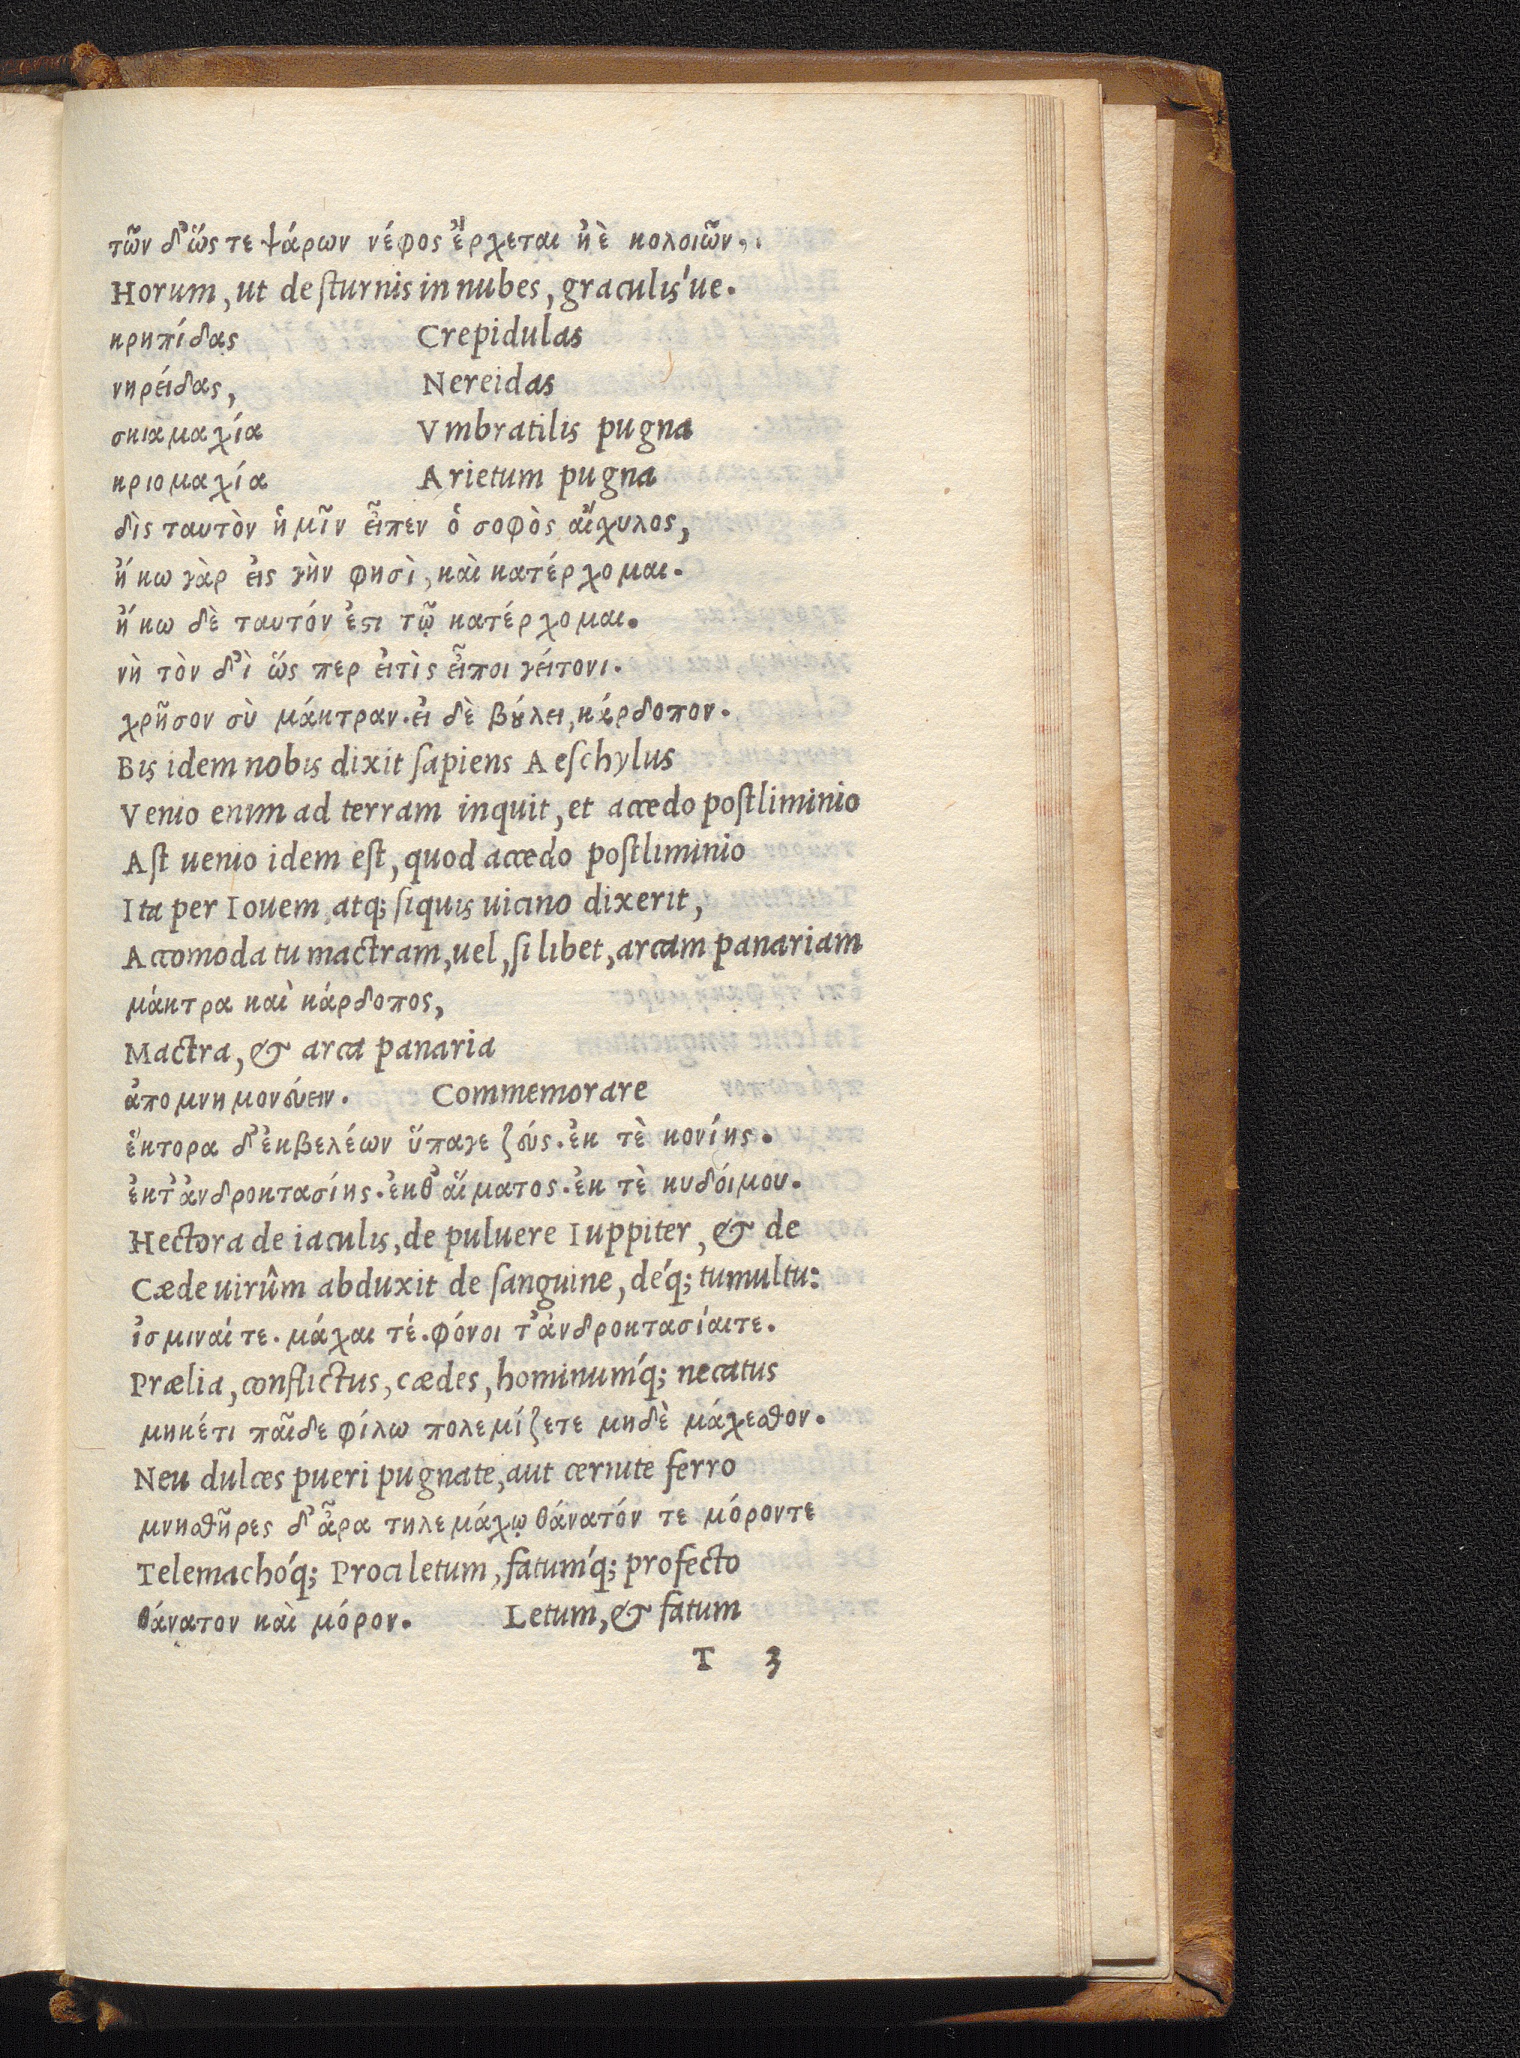 τῶν δ' ὥς τε ψάρων νέφος ἔρχεται ἠὲ κολοιῶν.
Horum, ut de ſturnis in nubes, graculis'ue.
κρηπίδας Crepidulas
νηρείδας, Nereidas
σκιαμαχία Vmbratilis pugna
κριομαχία Arietum pugna
δὶς ταυτὸν ἡμῖν εἶπεν ὁ σοφὸς αἴχυλος,
ἥκω γὰρ εἰς γὴν φησὶ, καὶ κατέρχομαι.
ἥκω δὲ ταυτόν ἐϛι τῷ κατέρχομαι.
νὴ τὸν δ'ὶ ὥς περ εἰτὶς εἶποι γείτονι.
χρῆσον σὺ μάκτραν. εἰ δὲ βȣ́λει, κάρδοπον.
Bis idem nobis dixit ſapiens Aeſchylus
Venio enim ad terram inquit, et accedo poſtliminio
Aſt uenio idem eſt, quod accedo poſtliminio
Ita per Iouem atq; ſiquis uicino dixerit,
Accomoda tu mactram, uel, ſi libet, arcam panariam
μάκτρα καὶ κάρδοπος,
Mactra, & arca panaria
ἀπομνημονεύειν. Commemorare
ἕκτορα δ' ἐκβελέων ὕπαγε ζεύς. ἐκ τὲ κονίης.
ἐκτ' ἀνδροκτασίης. ἐκθ' αἵματος. ἐκ τὲ κυδόιμου.
Hectora de iaculis, de puluere Iuppiter, & de
Cæde uirûm abduxit de ſanguine, déq; tumultu:
ἰσμιναί τε. μάχαι τέ. φόνοι τ' ἀνδροκτασίαιτε.
Prælia, conflictus, cædes, hominumq́; necatus
μηκέτι παῖδε φίλω πολεμίζετε μηδὲ μάχεσθον.
Neu dulces pueri pugnate, aut cernite ferro
μνησθῆρες δ' ἆρα τηλεμάχῳ θάνατόν τε μόροντε
Telemachóq; Proci letum, fatumq́; profecto
θάνατον καὶ μόρον. Letum, & fatum
T 3